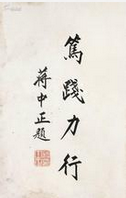 篤踐力行
蔣中正題